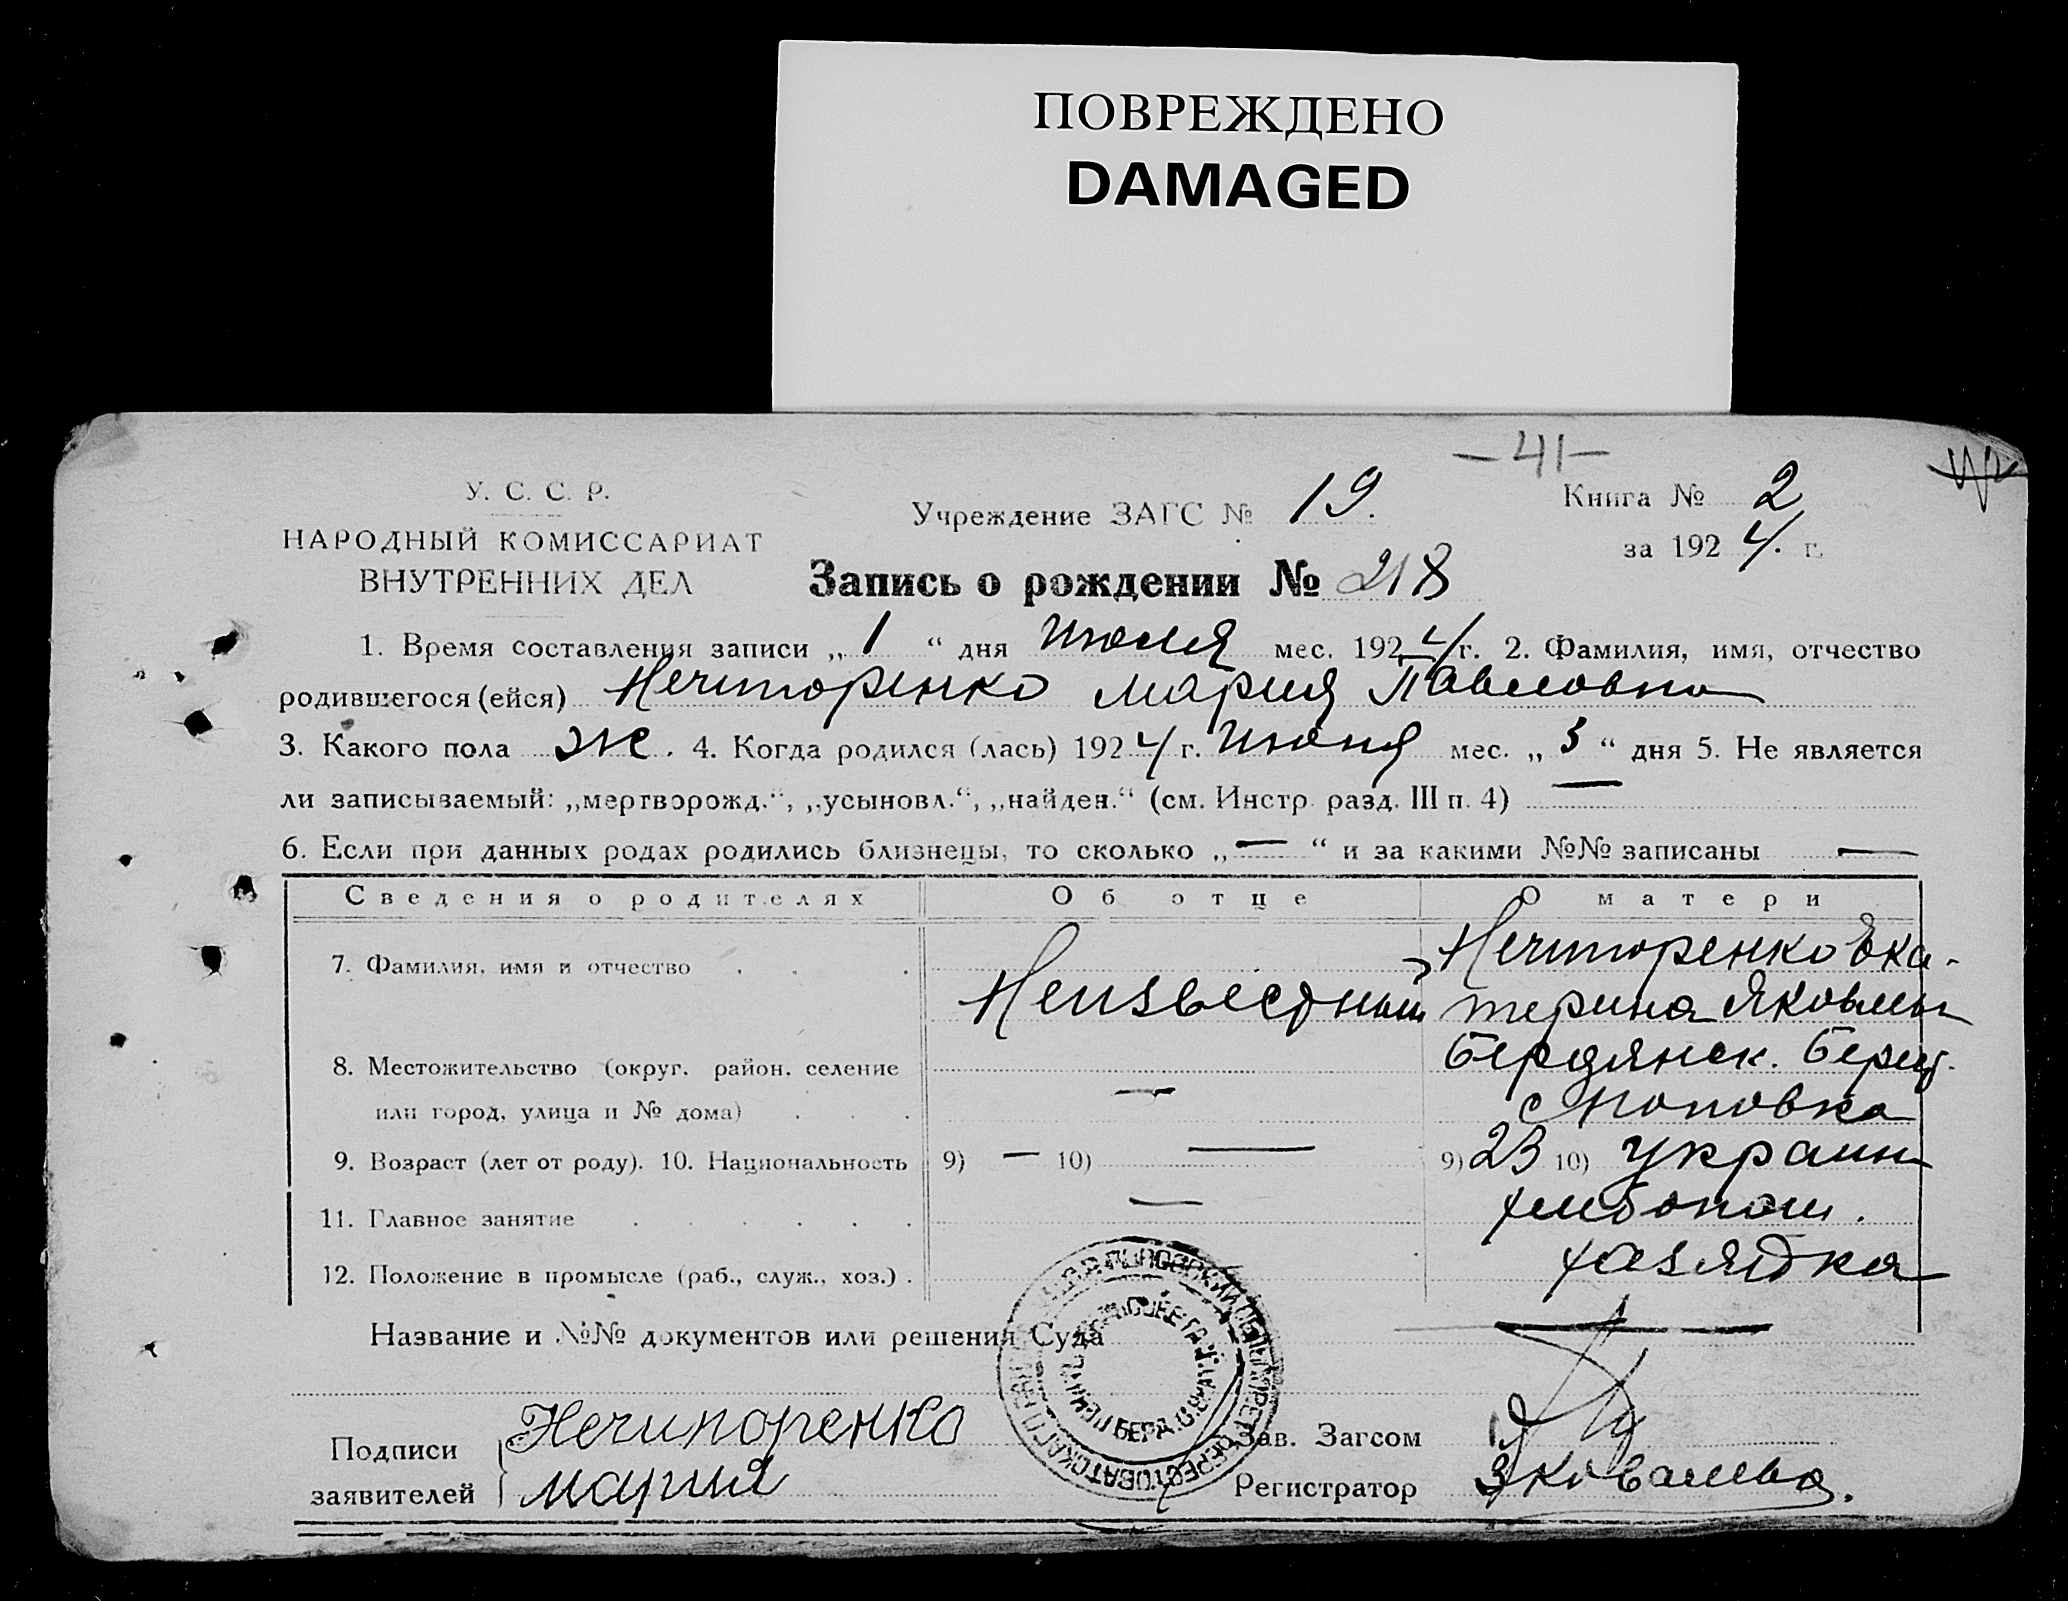 ПОВРЕЖДЕНО
DAMAGED
— 41 —
У. С. С. Р.
НАРОДНЫЙ КОМИССАРИАТ
ВНУТРЕННИХ ДЕЛ
Учреждение ЗАГС № 19.
Книга № 2
за 1924. г.
Запись о рождении № 218
1. Время составления записи „ 1 “ дня июля мес. 1924 г. 2. Фамилия, имя, отчество
родившегося (ейся) Нечипоренко Мария Павловна
3. Какого пола ж. 4. Когда родился (лась) 1924 г. июня мес. „ 3 “ дня 5. Не является
ли записываемый: „мертворожд.“, „усыновл.“, „найден.“ (см. Инстр. разд. III п. 4) —
6. Если при данных родах родились близнецы, то сколько „ — “ и за какими №№ записаны —
Сведения о родителях Об отце О матери
7. Фамилия, имя и отчество Неизвестный Нечипоренко Ека-
терина Яковлевн
8. Местожительство (округ. район. селение Бердянск. Берест.
или город, улица и № дома) — с Поповка
9. Возраст (лет от роду). 10. Национальность 9) — 10) — 9) 23 10) украин
11. Главное занятие — хлебопаш.
12. Положение в промысле (раб., служ., хоз.) хазяйка
Название и №№ документов или решения Суда
Подписи
заявителей
Нечипоренко
Мария
Зав. Загсом
Регистратор Ковалева.